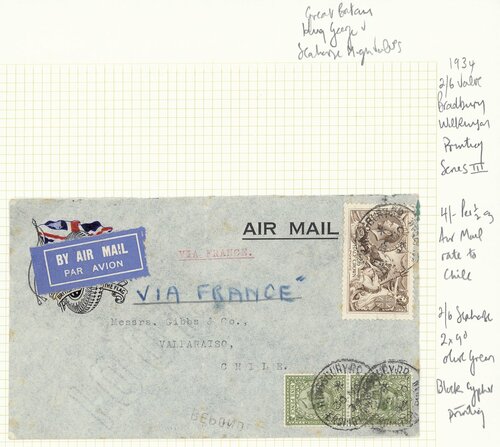 Great Britain
King George V
Seahorse High Values
1934
2/6 value
Bradbury
Wilkinson
Printing
Series III
4/- Per ½ oz
Air Mail
rate to
Chile
2/6 Seahorse
2 x 9d
olive Green
Block Cypher
printing
BY AIR MAIL
PAR AVION
AIR MAIL
VIA FRANCE.
VIA FRANCE"
Messrs. Gibbs & Co.,
VALPARAISO,
C H I L E.